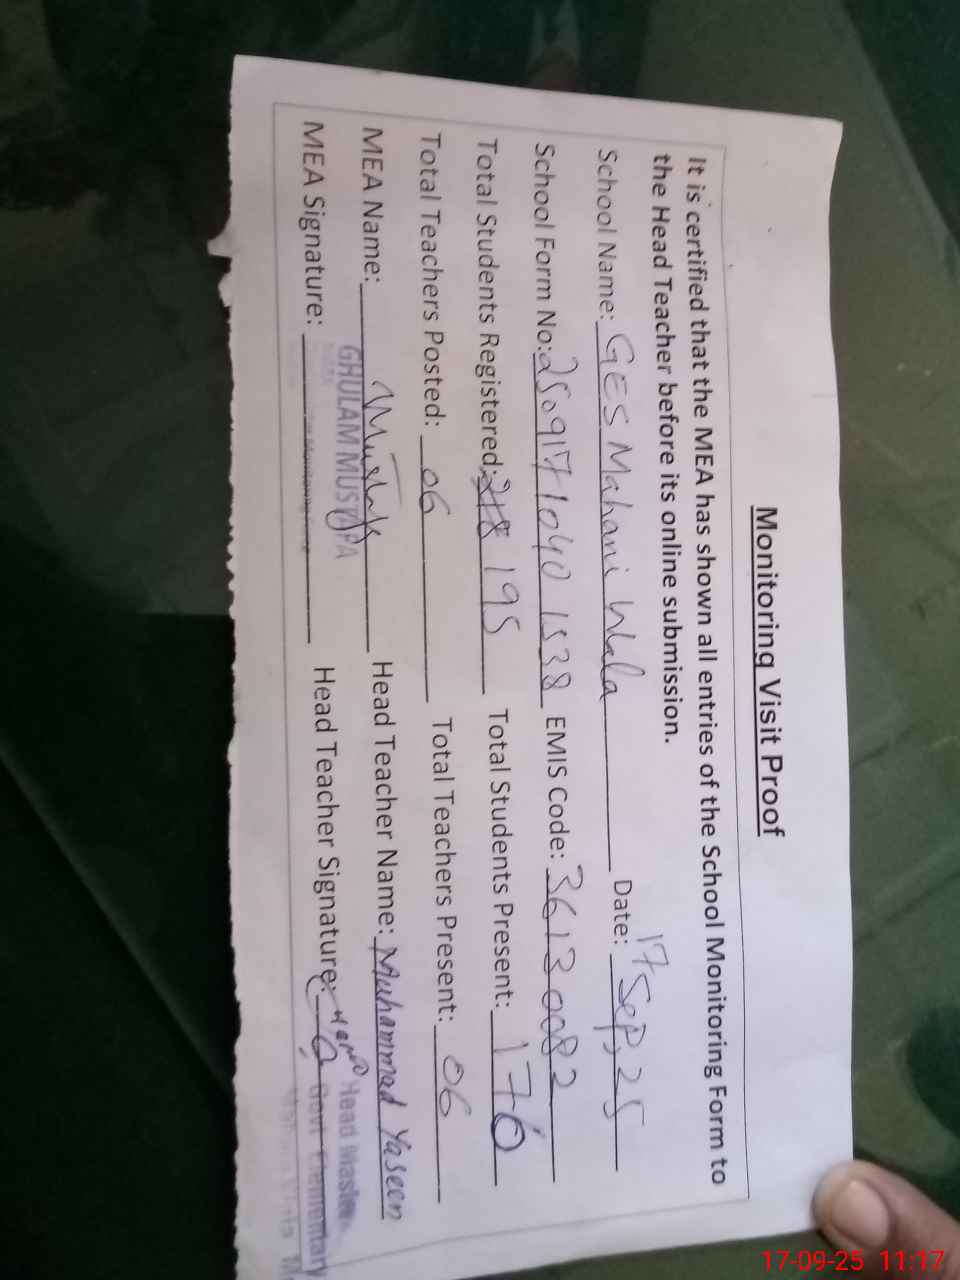 Monitoring Visit Proof
It is certified that the MEA has shown all entries of the School Monitoring Form to
the Head Teacher before its online submission.
School Name: GES Mahani Wala Date: 17 Sep, 25
School Form No: 2509171040 1538 EMIS Code: 36130082
Total Students Registered: 218 195 Total Students Present: 176
Total Teachers Posted: 06 Total Teachers Present: 06
MEA Name: Head Teacher Name: Muhammad Yaseen
GHULAM MUSTAFA
MEA Signature: Head Teacher Signature:
Head Master
Govt Elementary
17-09-25 11:17